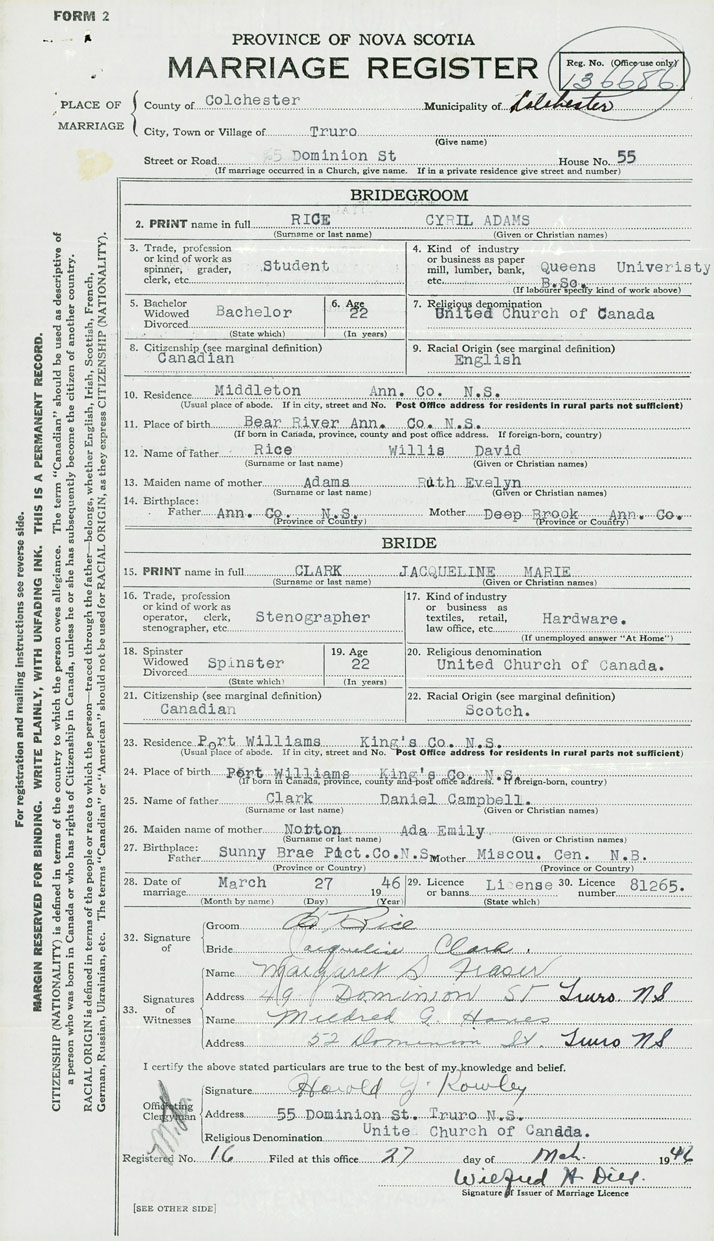 FORM 2
PROVINCE OF NOVA SCOTIA
MARRIAGE REGISTER
Reg. No. (Office use only)
136686
PLACE OF MARRIAGE
County of Colchester Municipality of Colchester
City, Town or Village of Truro
(Give name)
Street or Road 55 Dominion St House No. 55
(If marriage occurred in a Church, give name. If in a private residence give street and number)
BRIDEGROOM
2. PRINT name in full RICE CYRIL ADAMS
(Surname or last name) (Given or Christian names)
3. Trade, profession or kind of work as spinner, grader, clerk, etc. Student
4. Kind of industry or business as paper mill, lumber, bank, etc. Queens Univeristy B.Sc.
(If labourer specify kind of work above)
5. Bachelor Widowed Divorced Bachelor
(State which)
6. Age 22
(In years)
7. Religious denomination
United Church of Canada
8. Citizenship (see marginal definition)
Canadian
9. Racial Origin (see marginal definition)
English
10. Residence Middleton Ann. Co. N.S.
(Usual place of abode. If in city, street and No. Post Office address for residents in rural parts not sufficient)
11. Place of birth Bear River Ann. Co. N.S.
(If born in Canada, province, county and post office address. If foreign-born, country)
12. Name of father Rice Willis David
(Surname or last name) (Given or Christian names)
13. Maiden name of mother Adams Ruth Evelyn
(Surname or last name) (Given or Christian names)
14. Birthplace:
Father Ann. Co. N.S. Mother Deep Brook Ann. Co.
(Province or Country) (Province or Country)
BRIDE
15. PRINT name in full CLARK JACQUELINE MARIE
(Surname or last name) (Given or Christian names)
16. Trade, profession or kind of work as operator, clerk, stenographer, etc. Stenographer
17. Kind of industry or business as textiles, retail, law office, etc. Hardware.
(If unemployed answer "At Home")
18. Spinster Widowed Divorced Spinster
(State which)
19. Age 22
(In years)
20. Religious denomination
United Church of Canada.
21. Citizenship (see marginal definition)
Canadian
22. Racial Origin (see marginal definition)
Scotch.
23. Residence Port Williams King's Co. N.S.
(Usual place of abode. If in city, street and No. Post Office address for residents in rural parts not sufficient)
24. Place of birth Port Williams King's Co. N.S.
(If born in Canada, province, county and post office address. If foreign-born, country)
25. Name of father Clark Daniel Campbell.
(Surname or last name) (Given or Christian names)
26. Maiden name of mother Norton Ada Emily
(Surname or last name) (Given or Christian names)
27. Birthplace:
Father Sunny Brae Pict.Co.N.S. Mother Miscou. Cen. N.B.
(Province or Country) (Province or Country)
28. Date of marriage March 27 1946
(Month by name) (Day) (Year)
29. Licence or banns License
(State which)
30. Licence number 81265.
32. Signature of
Groom C Rice
Bride Jacqueline Clark.
33. Signatures of Witnesses
Name Margaret S Fraser
Address 49 Dominion ST Truro. NS
Name Mildred G.
Address 52 Dominion St. Truro NS
I certify the above stated particulars are true to the best of my knowledge and belief.
Officiating Clergyman
Signature Harold J. Rowley
Address 55 Dominion St. Truro N.S.
Religious Denomination Unite Church of Canada.
Registered No. 16 Filed at this office 27 day of Mch. 1946
Wilfred H Dies.
Signature of Issuer of Marriage Licence
[SEE OTHER SIDE]
For registration and mailing instructions see reverse side.
MARGIN RESERVED FOR BINDING. WRITE PLAINLY, WITH UNFADING INK. THIS IS A PERMANENT RECORD.
CITIZENSHIP (NATIONALITY) is defined in terms of the country to which the person owes allegiance. The term "Canadian" should be used as descriptive of
a person who was born in Canada or who has rights of Citizenship in Canada, unless he or she has subsequently become the citizen of another country.
RACIAL ORIGIN is defined in terms of the people or race to which the person—traced through the father—belongs, whether English, Irish, Scottish, French,
German, Russian, Ukrainian, etc. The terms "Canadian" or "American" should not be used for RACIAL ORIGIN, as they express CITIZENSHIP (NATIONALITY).